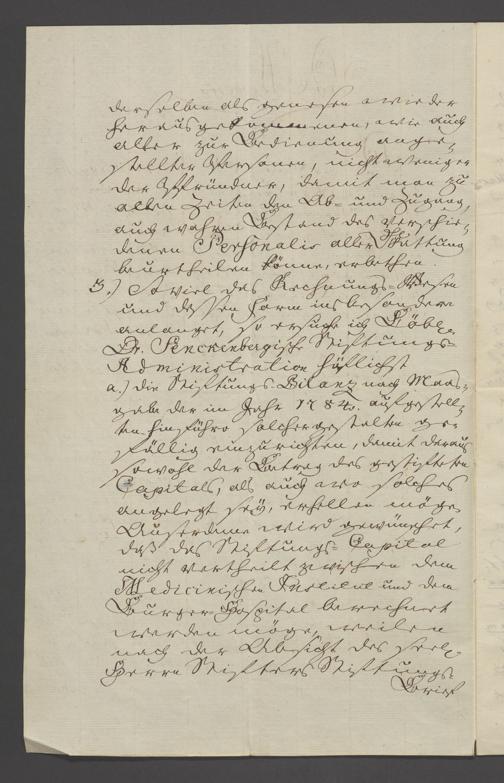 derselben als genesen wieder
herausgekommenen, wie auch
aller zur Bedienung ange-
stellter Personen, nicht weniger
der Pfründner, damit man zu
allen Zeiten den Ab- und Zugang,
auch wahren Bestand des verschie-
denen Personalis aller Gattung
beurtheilen könne, erbethen.
3.) So viel das Rechnungs-Wesen
und dessen Form insbesondere
anlanget, so ersuche ich Löbl.
Dr. Senckenbergische Stiftungs-
Administration höflichst
a.) die Stiftungs-Bilanz nach Maas-
gabe der im Jahr 1784. aufgestell-
ten hinführo solchergestalten ge-
fällig einzurichten, damit daraus
sowohl der Betrag des gestifteten
Capitals, als auch wo solches
angelegt sey, erhellen möge.
Auserdeme wird gewünschet,
daß das Stiftungs-Capital
nicht vertheilt zwischen dem
Medicinischen Institut und dem
Burger-Hospital berechnet
werden möge, weilen
nach der Absicht des seel.
Herrn Stifters Stiftungs-
Brief